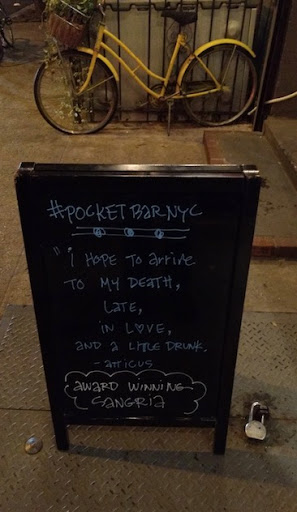 #POCKETBARNYC
"i HOPE TO arrive
TO MY DEATH,
LATE,
IN LOVE,
AND A LITTLE DRUNK.
- atticus
AWARD WINNING
SANGRIA